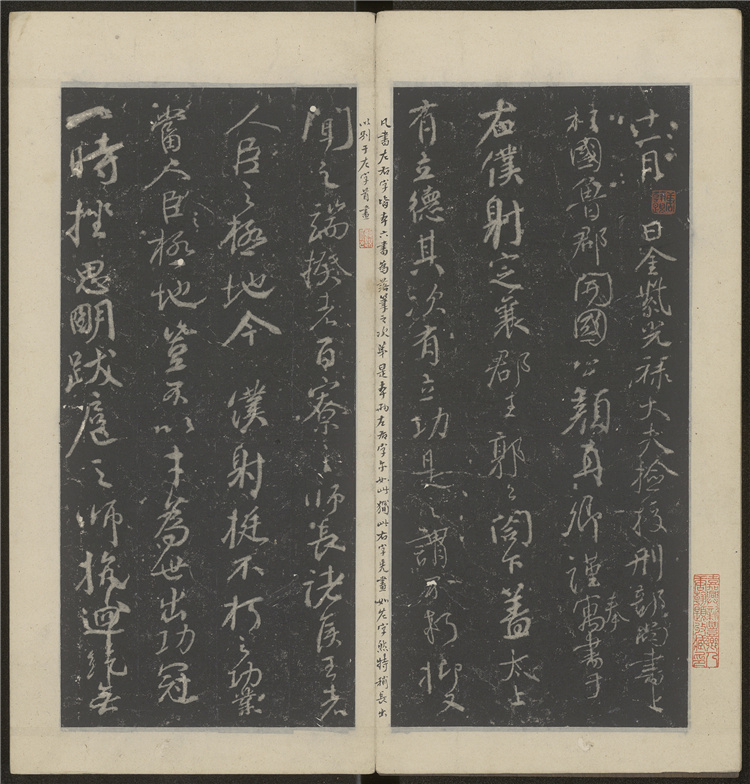 十一月　日金紫光祿大夫檢校刑部尚書上
柱國魯郡開國公顏真卿謹奉寓書于
右僕射定襄郡王郭公閤下蓋太上
有立德其次有立功是之謂不朽抑又
凡書左右字皆本六書為落筆之次第是左右字如此獨此右字先畫如左字然特稍長出
以別于左字首畫
聞之端揆者百寮之師長諸侯王者
人臣之極地今　僕射挺不朽之功業
當人臣極地豈不以才為世出功冠
一時挫思明跋扈之師抗迴紇無